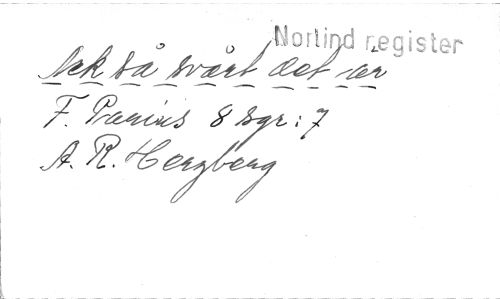 Norlind register
Ack så svårt det är
F. Pacius 8 sgr: 7
A. R. Herzberg